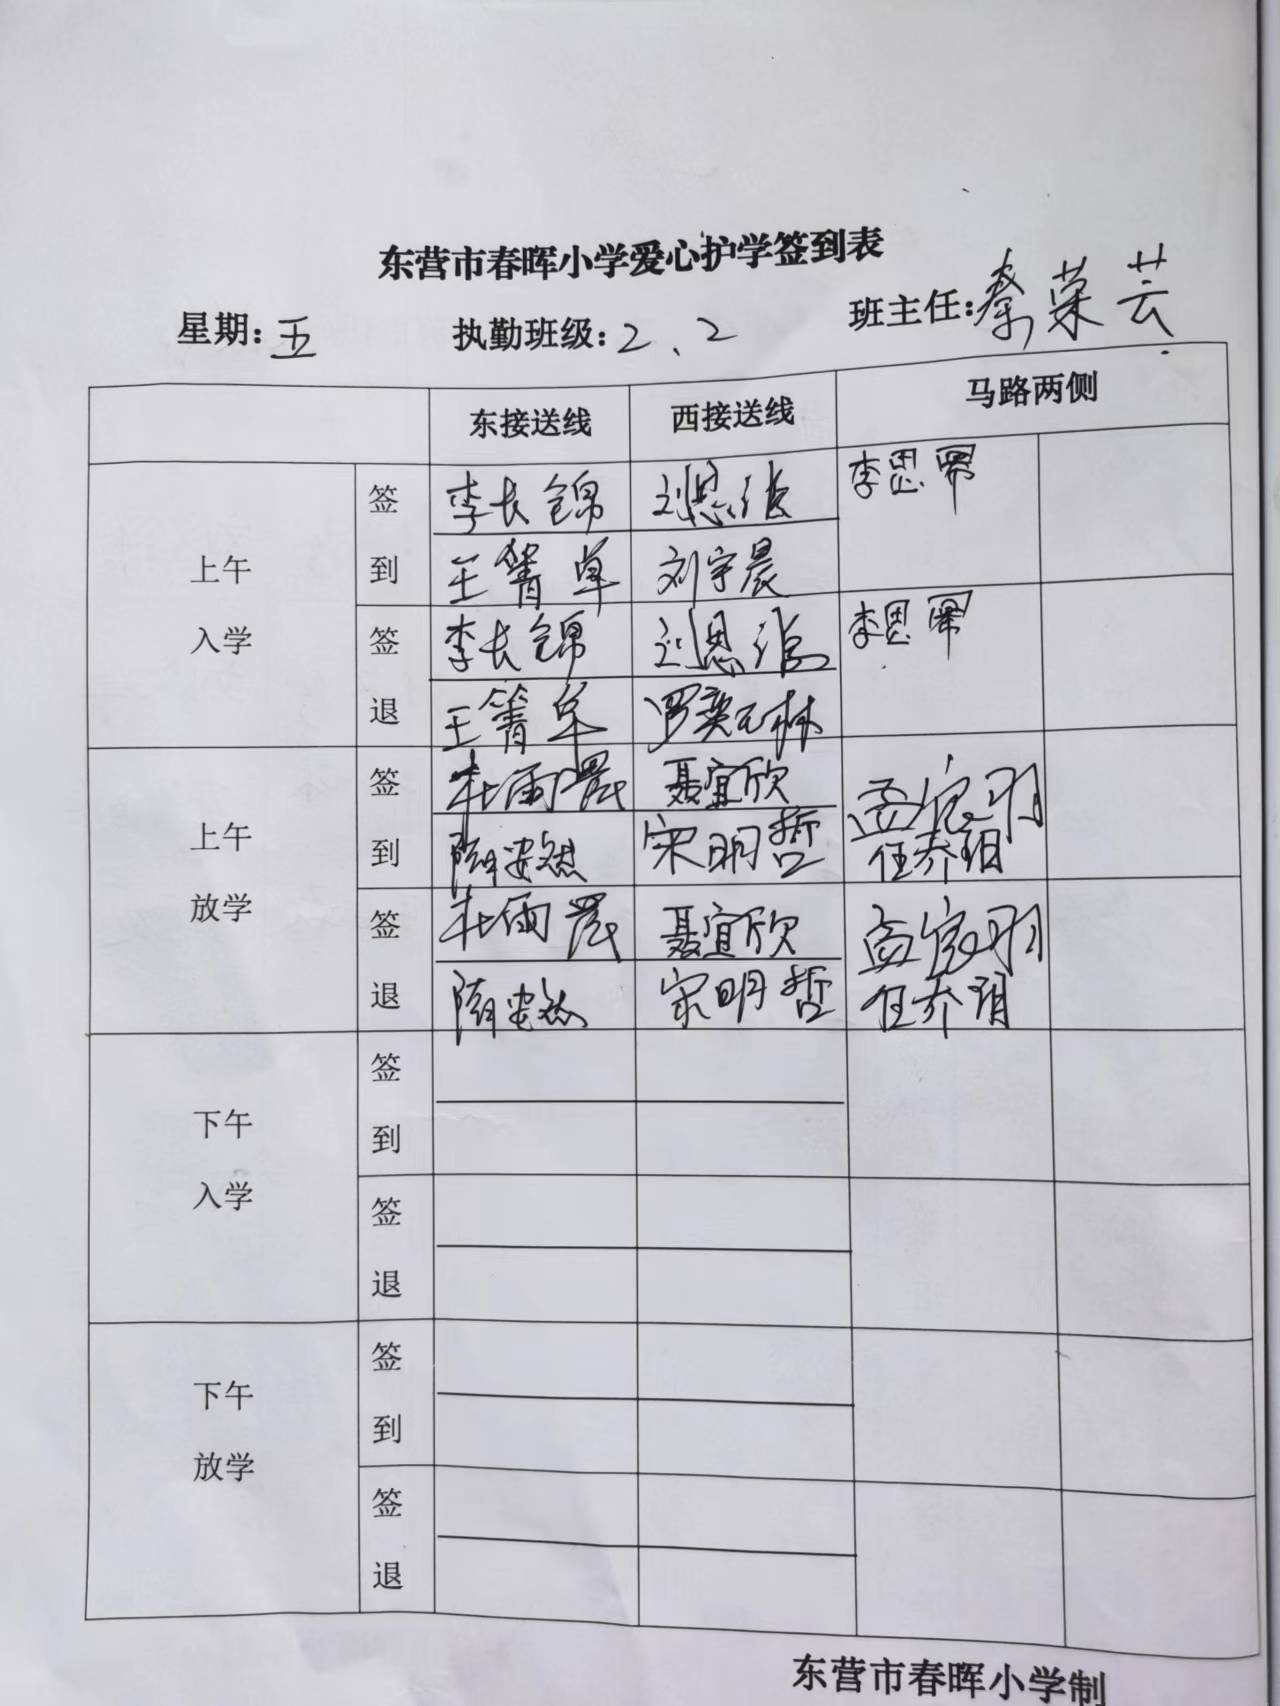 东营市春晖小学爱心护学签到表
星期:五 执勤班级:2、2 班主任:秦荣芸
东接送线 西接送线 马路两侧
上午入学 签到 李长锦 刘恩 李思
王箐卓 刘宇晨
签退 李长锦 刘恩 李思
王箐卓 罗奕林
上午放学 签到 杜雨晨 聂宜欣 孟家羽
隋安然 宋明哲 任乔
签退 杜雨晨 聂宜欣 孟家羽
隋安然 宋明哲 任乔
下午入学 签到
签退
下午放学 签到
签退
东营市春晖小学制